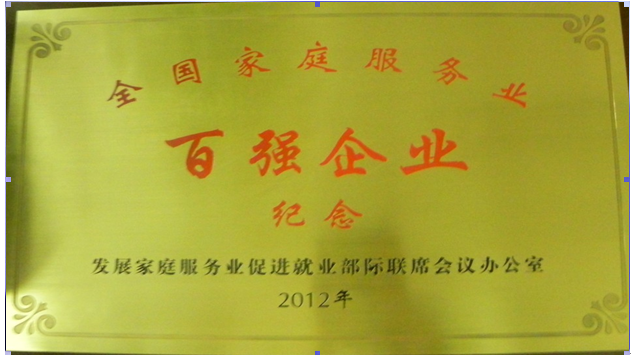 全国家庭服务业
百强企业
纪念
发展家庭服务业促进就业部际联席会议办公室
2012年